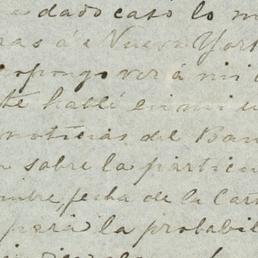 dado caso lo
á Nueva York
opongo ver á mi
hablé en mi
noticias del Ban
sobre la particu
mbre, fecha de la Carta
para la probabil